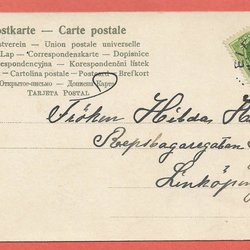 ostkarte — Carte postale
stverein — Union postale universelle
Lap — Correspondenzkarte — Dopisnice
respondencyjna — Korespondenční lístek
Cartolina postale — Postcard — Brefkort
Открытое письмо —
TARJETA POSTAL
Fröken Hildas Ha
Repslagaregatan
Linköping